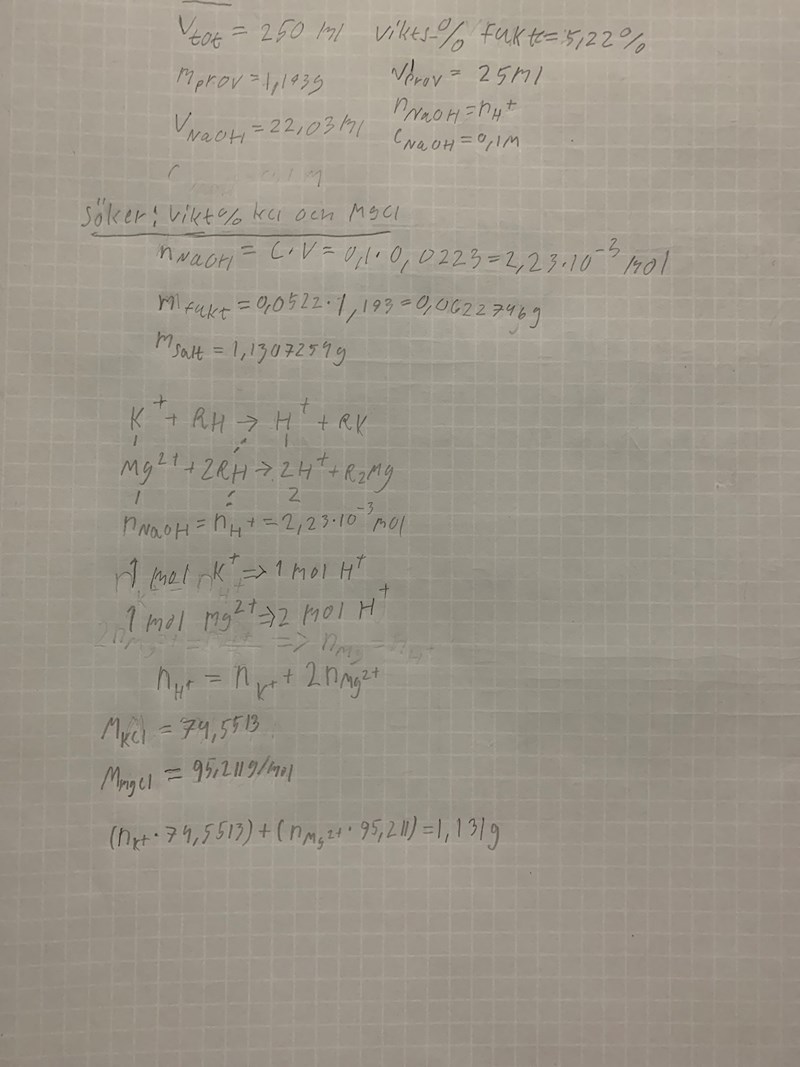 V_tot = 250 ml vikts-% fukt=5,22%
m_prov = 1,193g V_prov = 25ml
n_NaOH = n_H+
V_NaOH = 22,03 ml C_NaOH = 0,1M
Söker: vikt% kcl och MgCl
n_NaOH = C·V = 0,1·0,0223 = 2,23·10^-3 mol
m_fukt = 0,0522·1,193 = 0,0622746g
m_salt = 1,1307254g
K^+ + RH → H^+ + RK
1 1
Mg^2+ + 2RH → 2H^+ + R_2Mg
1 2
n_NaOH = n_H+ = 2,23·10^-3 mol
1 mol K^+ => 1 mol H^+
1 mol Mg^2+ => 2 mol H^+
n_H+ = n_K+ + 2n_Mg2+
M_KCl = 74,5513
M_MgCl = 95,211g/mol
(n_K+ · 74,5513) + (n_Mg2+ · 95,211) = 1,131g